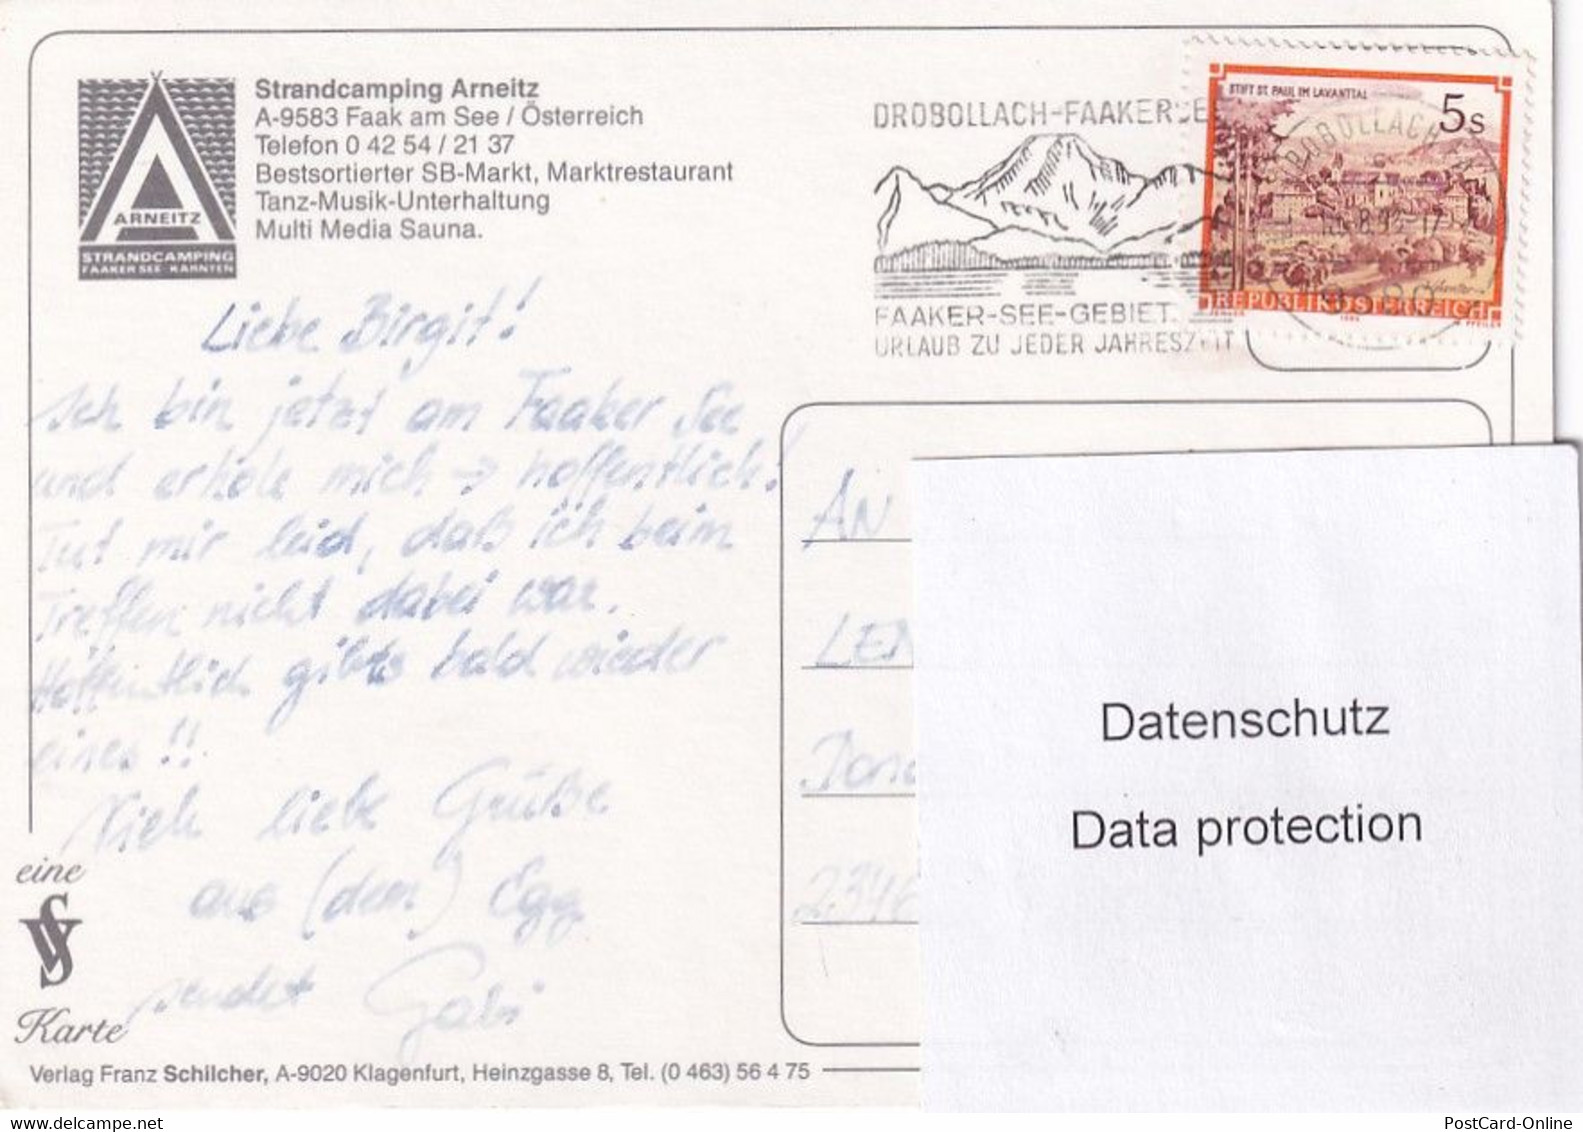 Strandcamping Arneitz
A-9583 Faak am See / Österreich
Telefon 0 42 54 / 21 37
Bestsortierter SB-Markt, Marktrestaurant
Tanz-Musik-Unterhaltung
Multi Media Sauna.
ARNEITZ
STRANDCAMPING
FAAKER SEE · KÄRNTEN
DROBOLLACH-FAAKERSEE
FAAKER-SEE-GEBIET.
URLAUB ZU JEDER JAHRESZEIT
STIFT ST. PAUL IM LAVANTTAL
5s
DROBOLLACH
REPUBLIK ÖSTERREICH
Liebe Birgit!
Ich bin jetzt am Faaker See
und erhole mich → hoffentlich!
Tut mir leid, daß ich beim
Treffen nicht dabei war.
Hoffentlich gibts bald wieder
eines!!
Viele liebe Grüße
aus (dem) Egg
sendet Gabi
AN
LEN
Dona
2346
Datenschutz
Data protection
eine
VS
Karte
Verlag Franz Schilcher, A-9020 Klagenfurt, Heinzgasse 8, Tel. (0 463) 56 4 75
PostCard-Online